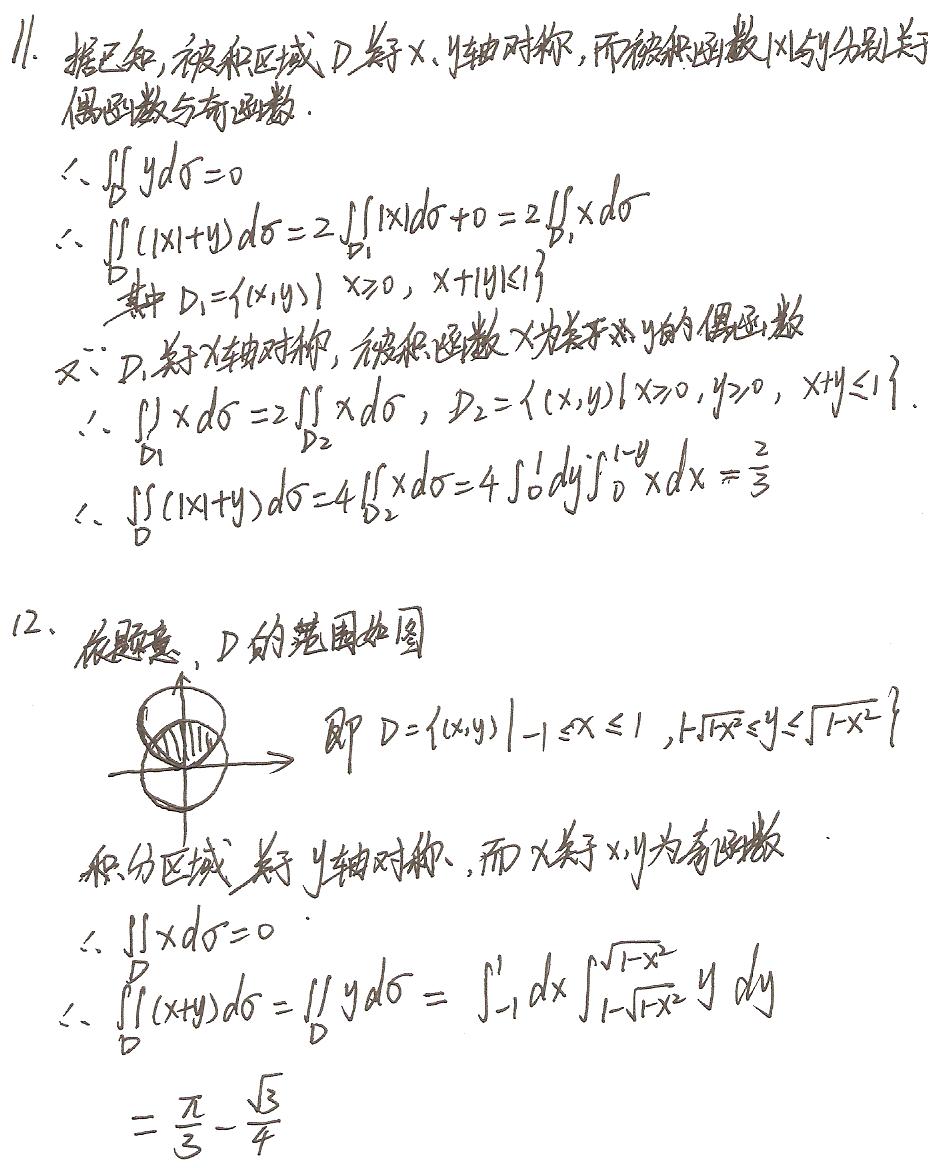 11. 据已知，被积区域 D 关于 x、y轴对称，而被积函数 |x| 与 y 分别关于
偶函数与奇函数.
∴ ∬_D y dσ = 0
∴ ∬_D (|x|+y) dσ = 2∬_{D₁} |x| dσ + 0 = 2∬_{D₁} x dσ
其中 D₁ = {(x,y) | x≥0, x+|y|≤1}
又∵ D₁ 关于 x轴对称，被积函数 x 为关于 y 的偶函数
∴ ∬_{D₁} x dσ = 2∬_{D₂} x dσ, D₂ = {(x,y) | x≥0, y≥0, x+y≤1}.
∴ ∬_D (|x|+y) dσ = 4∬_{D₂} x dσ = 4∫₀¹ dy ∫₀^{1-y} x dx = 2/3
12、依题意、D 的范围如图
即 D = {(x,y) | -1≤x≤1, 1-√(1-x²) ≤ y ≤ √(1-x²)}
积分区域关于 y轴对称、，而 x 关于 x,y 为奇函数
∴ ∬_D x dσ = 0
∴ ∬_D (x+y) dσ = ∬_D y dσ = ∫₋₁¹ dx ∫_{1-√(1-x²)}^{√(1-x²)} y dy
= π/3 - √3/4